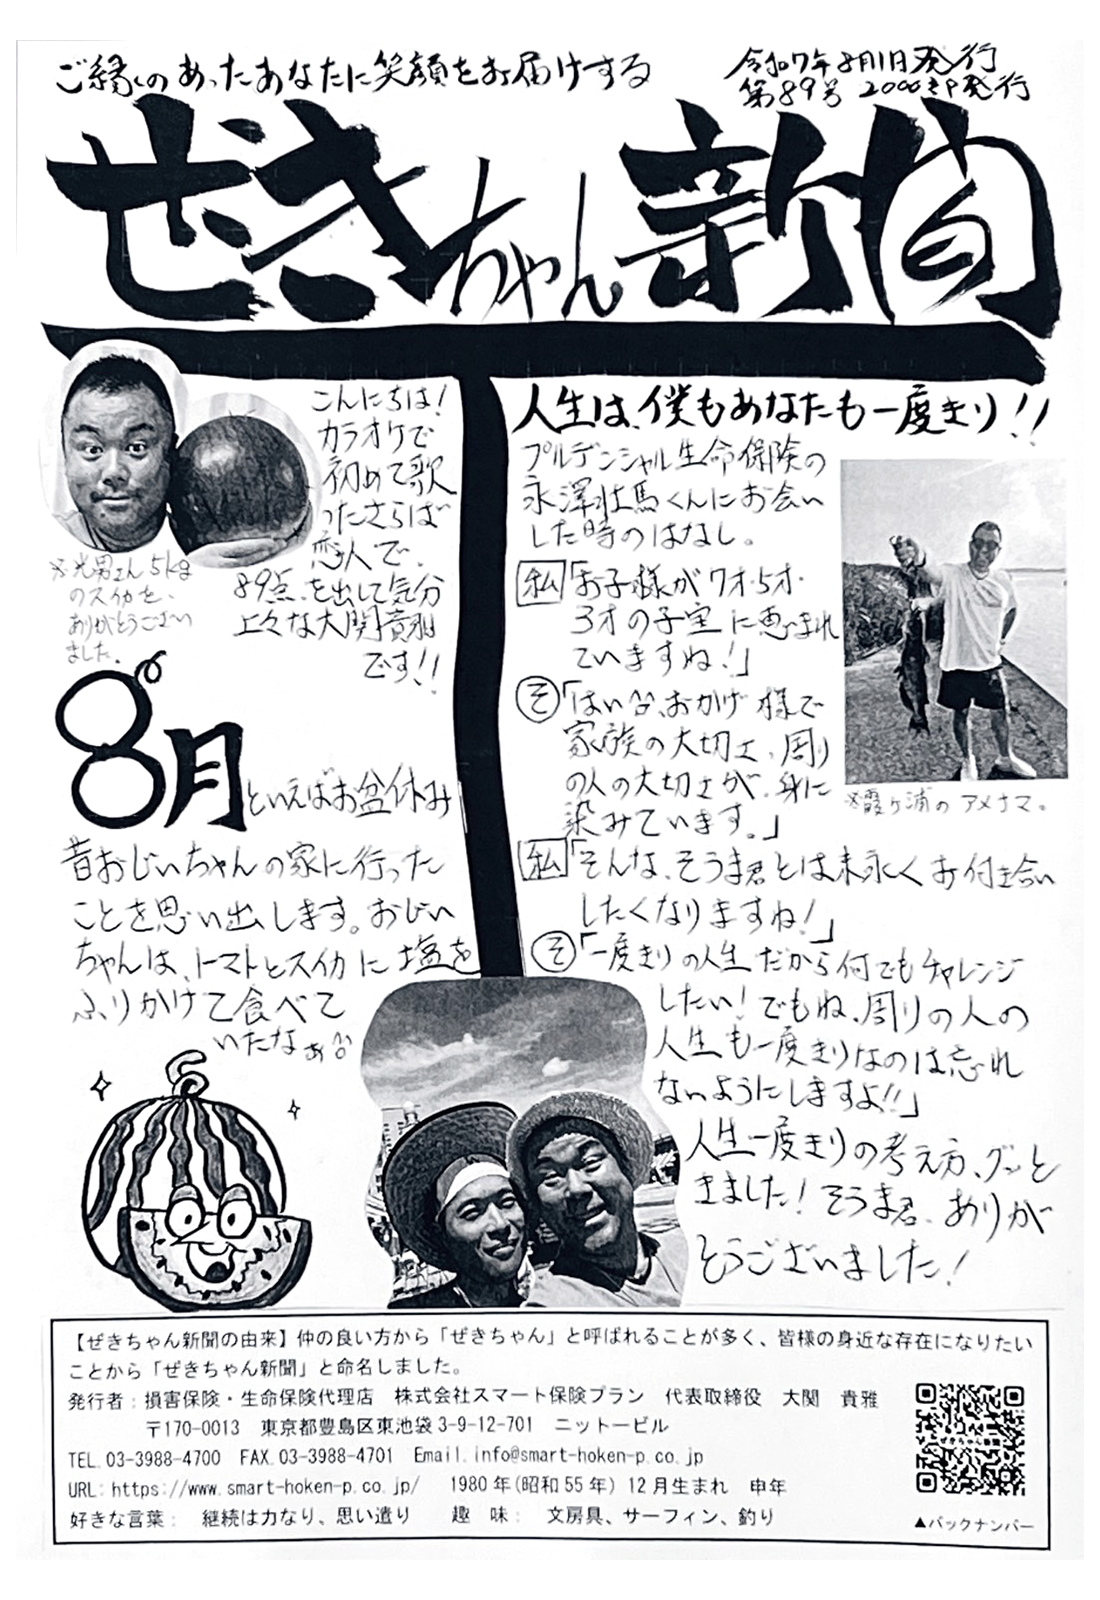 ご縁のあったあなたに笑顔をお届けする
令和7年8月1日発行
第89号 2000部発行
ぜきちゃん新聞
こんにちは!
カラオケで
初めて歌
ったさらば
恋人で、
89点を出して気分
上々な大関貴雅
です!!
※光男さん5kg
のスイカを、
ありがとうござい
ました。
8月といえばお盆休み
昔おじいちゃんの家に行った
ことを思い出します。おじい
ちゃんは、トマトとスイカに塩を
ふりかけて食べて
いたなぁ^^
人生は、僕もあなたも一度きり!!
プルデンシャル生命保険の
永澤壮馬くんにお会い
した時のはなし。
私「お子様が7才・5才・
3才の子宝に恵まれ
ていますね!」
そ「はい^^、おかげ様で
家族の大切さ、周り
の人の大切さが、身に
染みています。」
※霞ヶ浦のアメナマ。
私「そんな、そうま君とは末永くお付き合い
したくなりますね!」
そ「一度きりの人生だから何でもチャレンジ
したい!でもね、周りの人の
人生も一度きりなのは忘れ
ないようにしますよ!!」
人生一度きりの考え方、グッと
きました!そうま君、ありが
とうございました!
【ぜきちゃん新聞の由来】仲の良い方から「ぜきちゃん」と呼ばれることが多く、皆様の身近な存在になりたい
ことから「ぜきちゃん新聞」と命名しました。
発行者:損害保険・生命保険代理店 株式会社スマート保険プラン 代表取締役 大関 貴雅
〒170-0013 東京都豊島区東池袋3-9-12-701 ニットービル
TEL.03-3988-4700 FAX.03-3988-4701 Email.info@smart-hoken-p.co.jp
URL:https://www.smart-hoken-p.co.jp/ 1980年(昭和55年)12月生まれ 申年
好きな言葉: 継続は力なり、思い遣り 趣 味: 文房具、サーフィン、釣り
ぜきちゃん新聞
▲バックナンバー